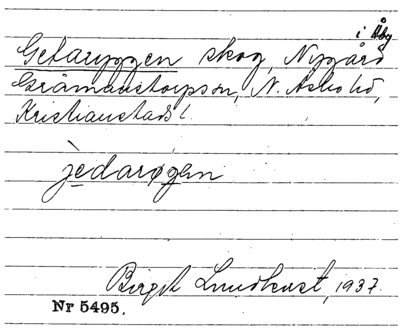 i Åby
Getaryggen skog, Nygård
Gråmanstorpssn, N. Åsbohd,
Kristianstads l.
jedarøgen
Birgit Lundkvist, 1937.
Nr 5495.